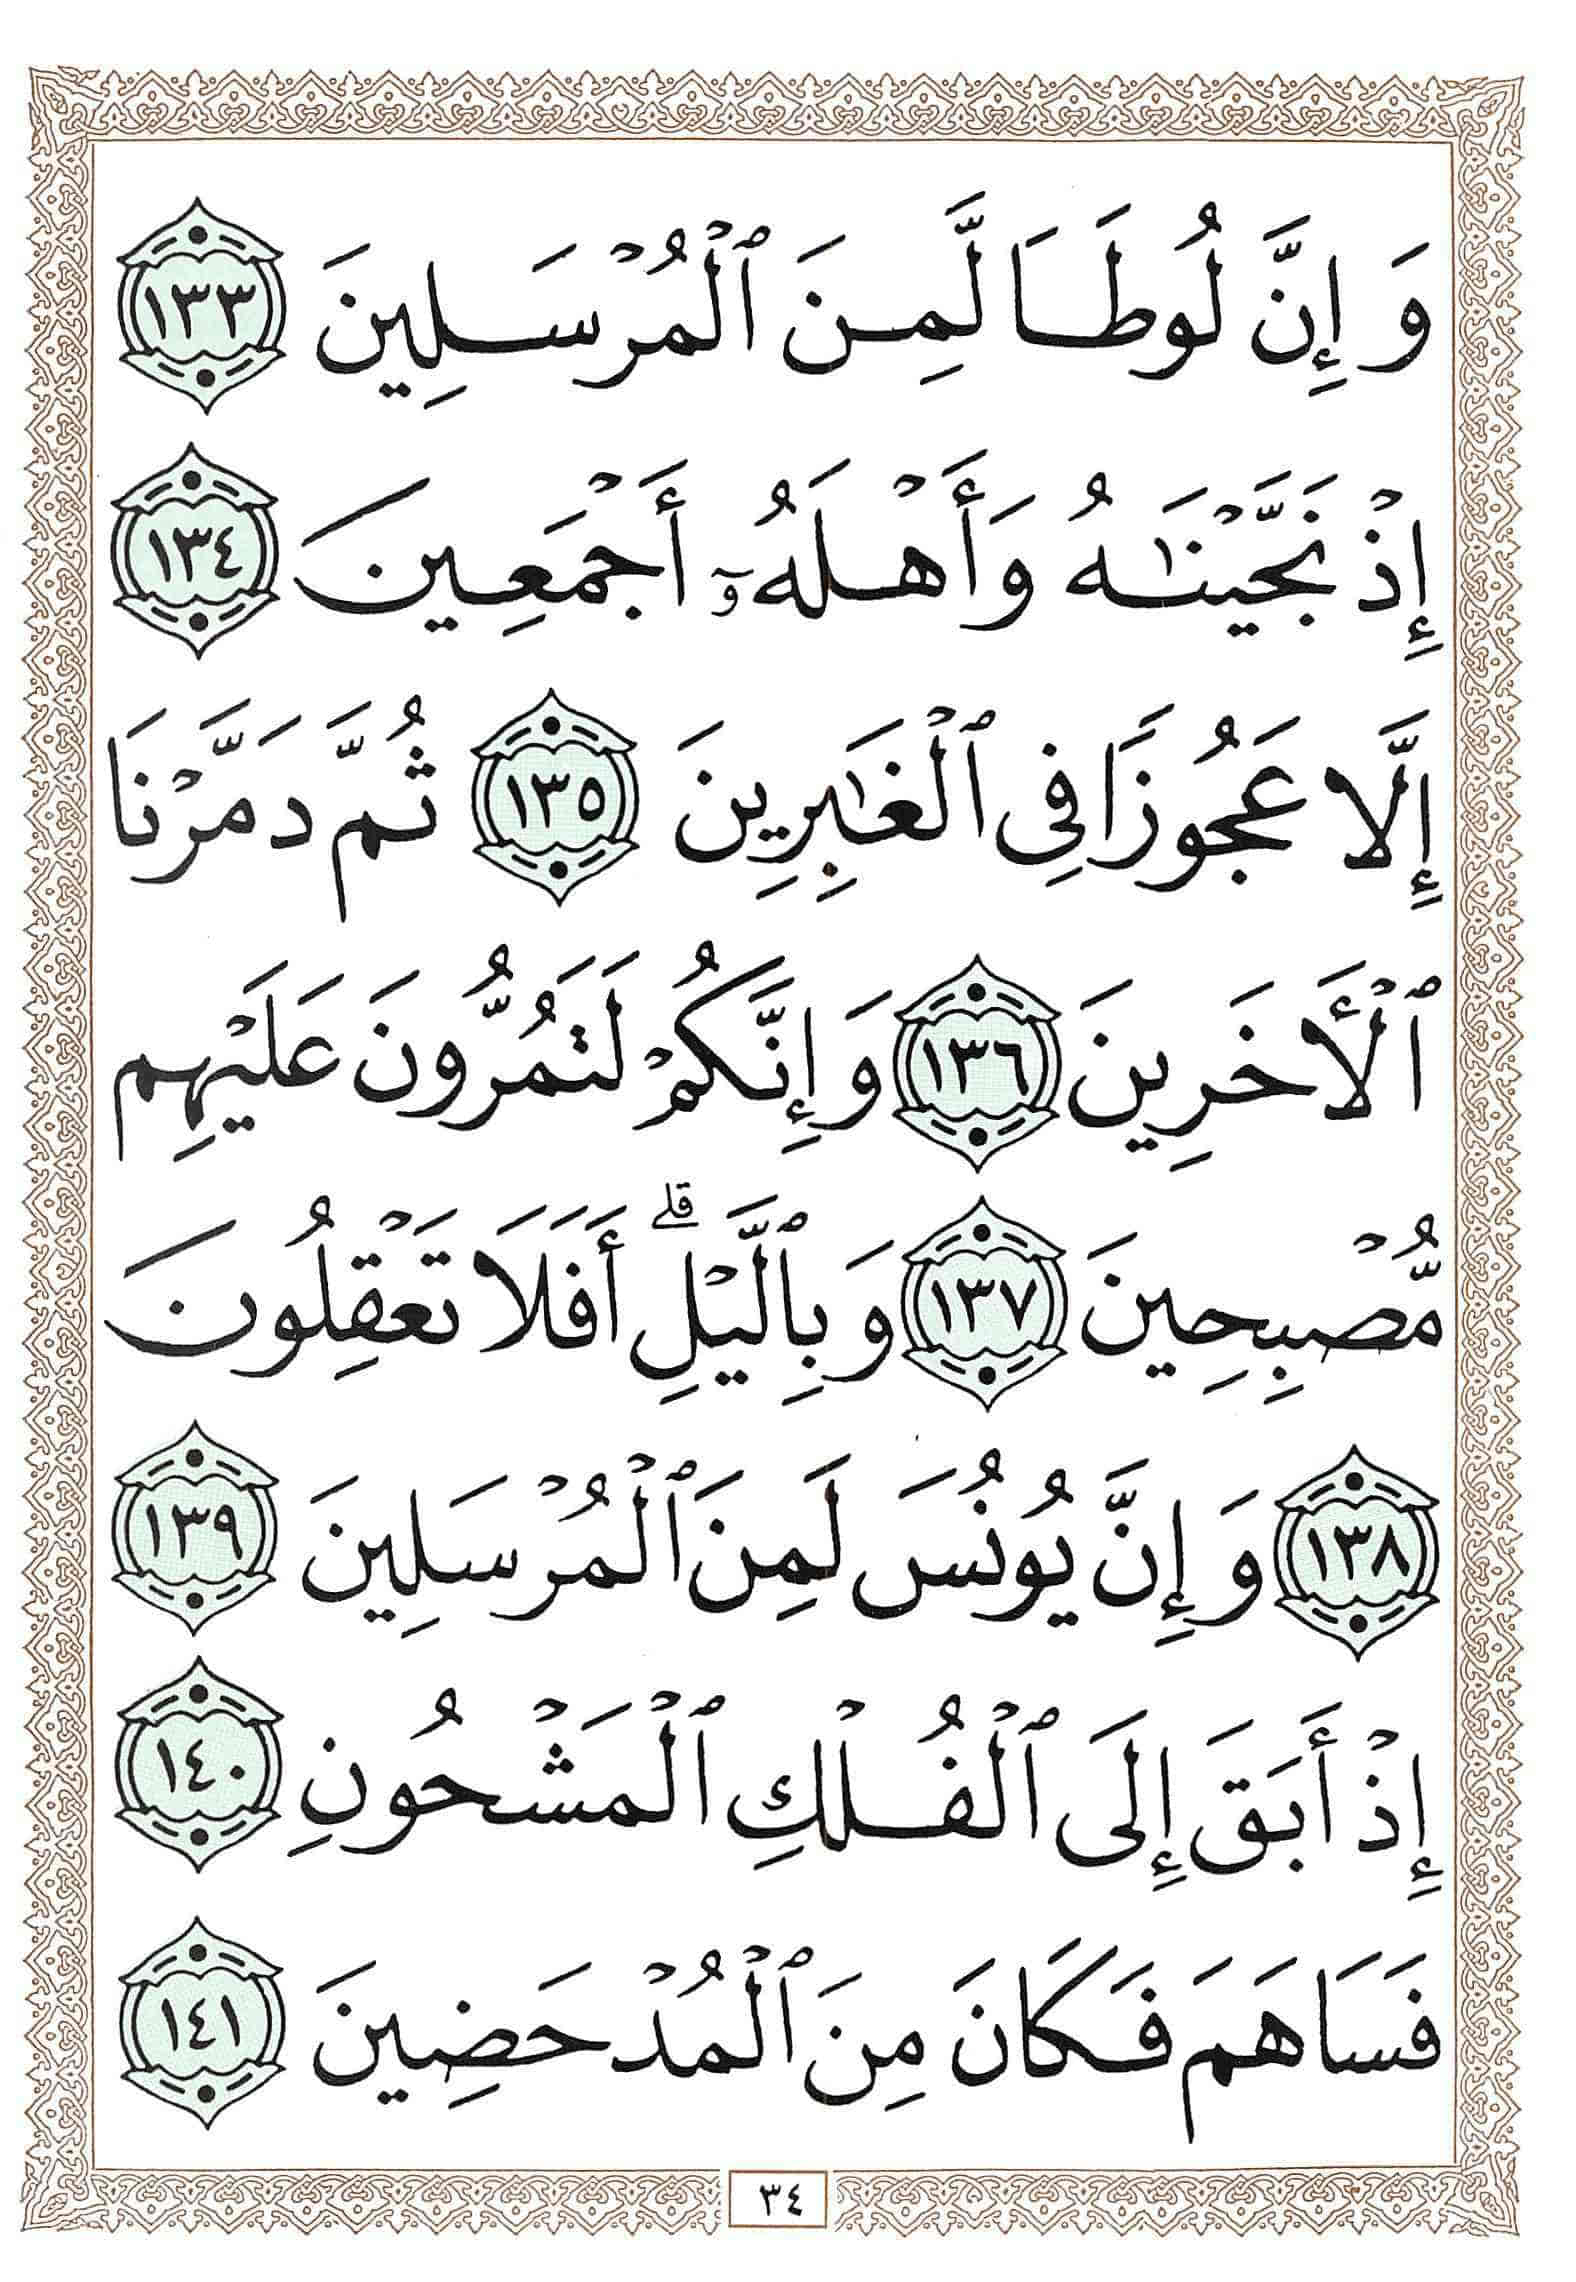 وَإِنَّ لُوطًا لَّمِنَ ٱلْمُرْسَلِينَ ١٣٣
إِذْ نَجَّيْنَٰهُ وَأَهْلَهُۥٓ أَجْمَعِينَ ١٣٤
إِلَّا عَجُوزًا فِى ٱلْغَٰبِرِينَ ١٣٥ ثُمَّ دَمَّرْنَا
ٱلْأَخَرِينَ ١٣٦ وَإِنَّكُمْ لَتَمُرُّونَ عَلَيْهِم
مُّصْبِحِينَ ١٣٧ وَبِٱلَّيْلِ ۗ أَفَلَا تَعْقِلُونَ
١٣٨ وَإِنَّ يُونُسَ لَمِنَ ٱلْمُرْسَلِينَ ١٣٩
إِذْ أَبَقَ إِلَى ٱلْفُلْكِ ٱلْمَشْحُونِ ١٤٠
فَسَاهَمَ فَكَانَ مِنَ ٱلْمُدْحَضِينَ ١٤١
٣٤